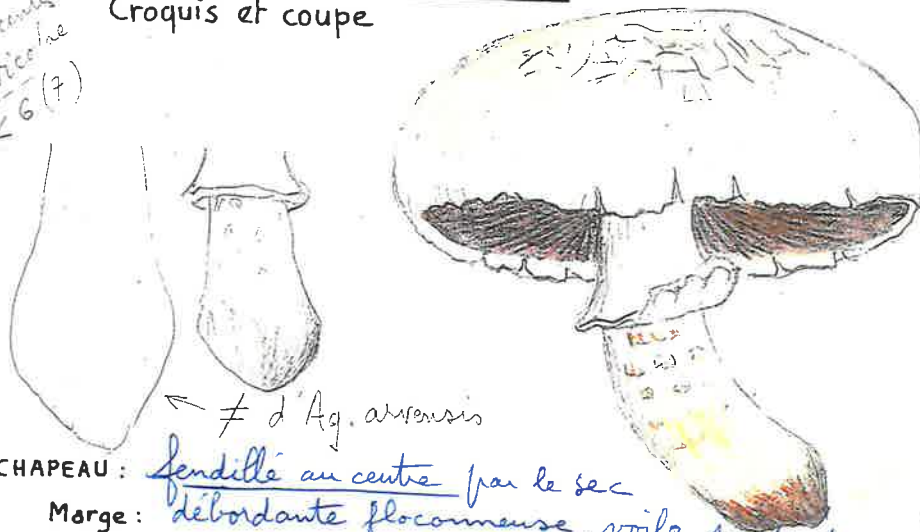 Croquis et coupe
6 (7)
≠ d'Ag. arvensis
CHAPEAU : fendillé au centre par le sec
Marge : débordante floconneuse, voile